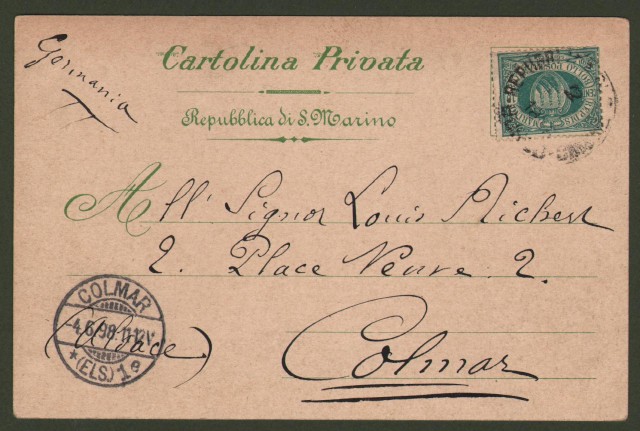 Germania
Cartolina Privata
Repubblica di S. Marino
All' Signor Louis Richert
2. Place Neuve. 2.
(Alsace) Colmar
COLMAR
4.6.98.11-12V.
*(ELS)1e